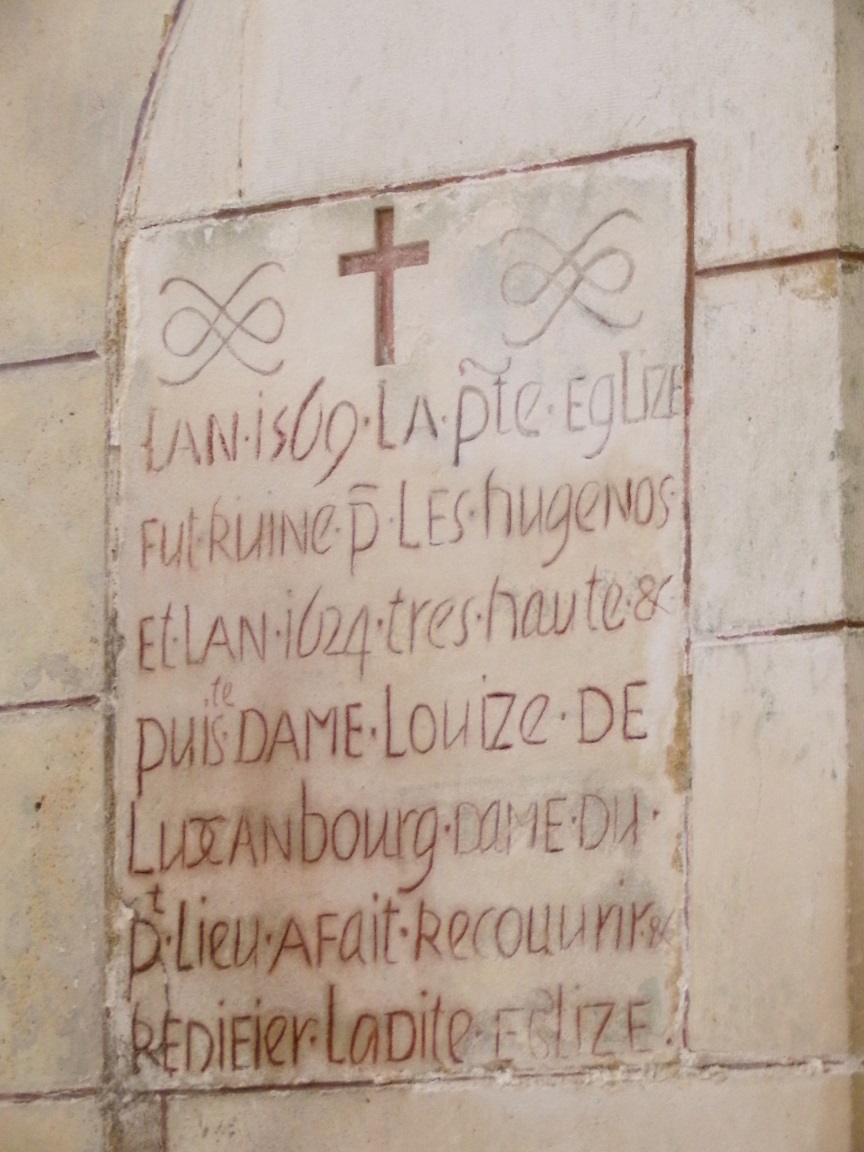 LAN·1569·LA·p̃te·EglIZE
FUt·RUINe·p̄·LES·hugeNOS·
Et·LAN·1624·tres·haute·&
puiste·DAME·LouiZe·DE
LuxANbourg·DaME·DU·
pt·Lieu·AFait·Recouurir·&
REDIFIer·LaDite·EGlIZE·